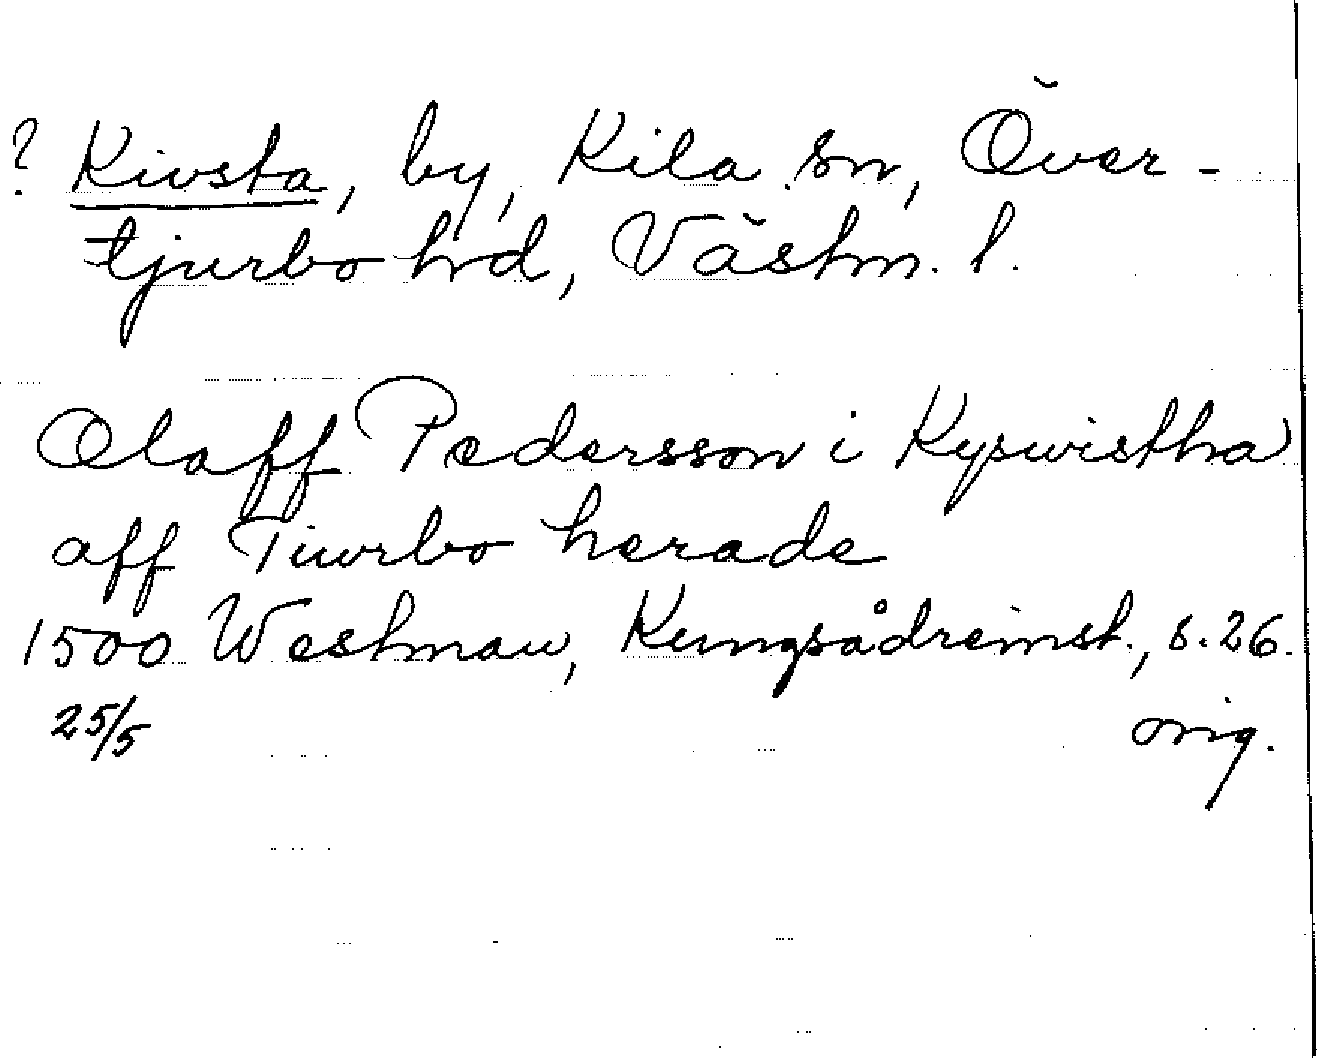 ? Kivsta, by, Kila sn, Över-
tjurbo hrd, Västm. l.
Olaff Pedersson i Kyswistha
aff Tiwrbo herade
1500 Westmaw, Kungsådreinst., s. 26.
25/5 orig.